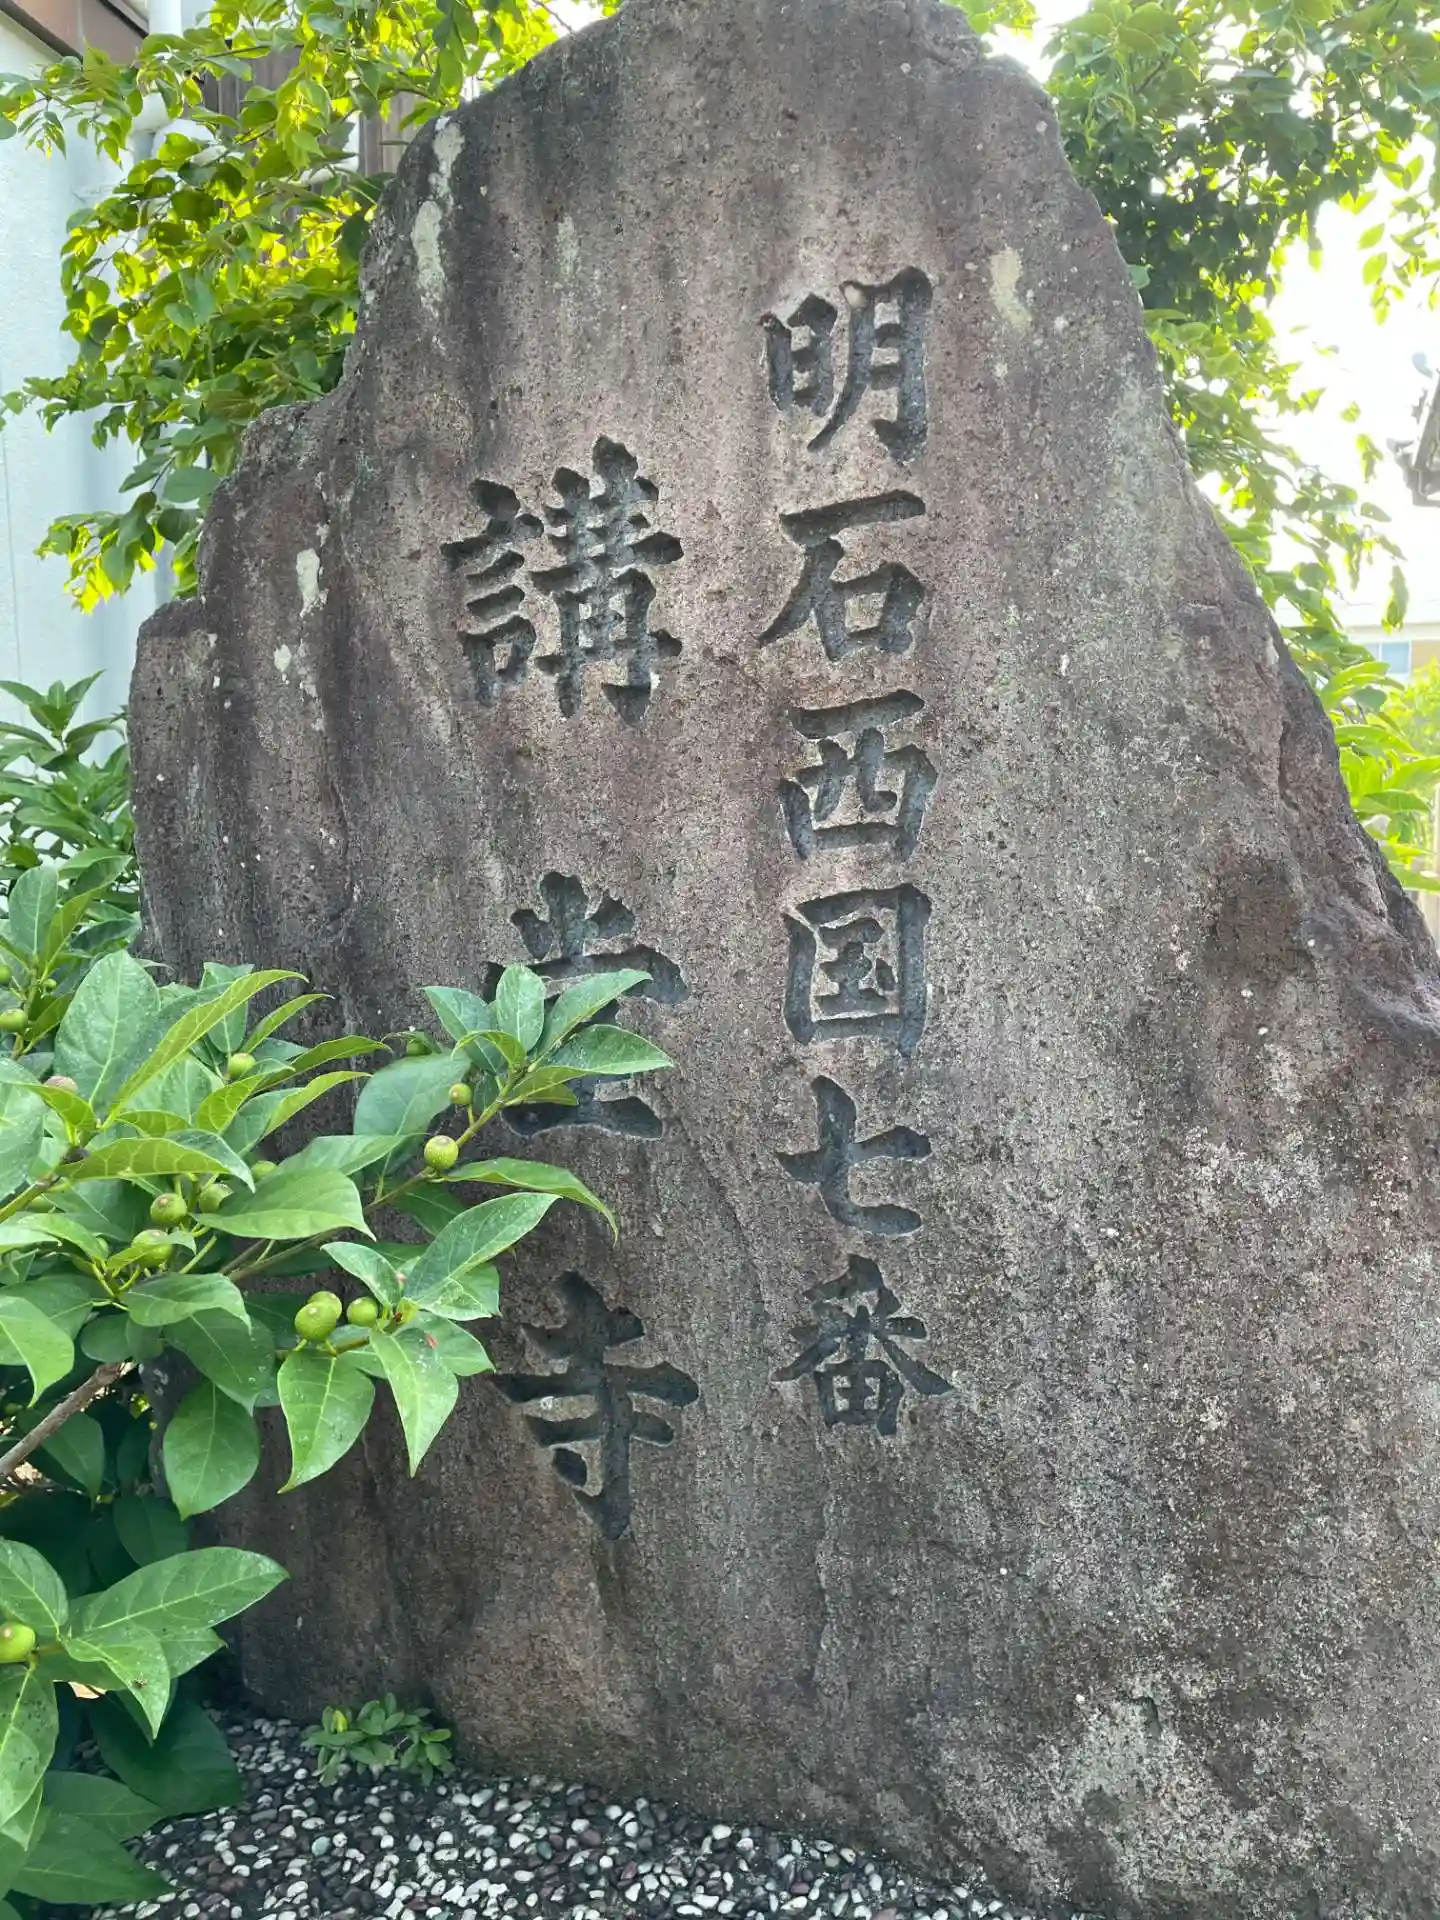 明石西国七番
講堂寺